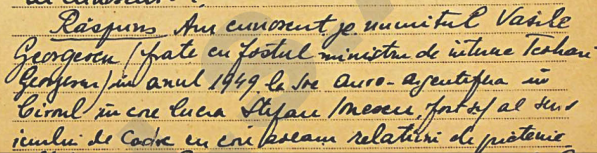 Răspuns Am cunoscut pe numitul Vasile
Georgescu (frate cu fostul ministru de interne Teohari
Georgescu) în anul 1949 la Soc auro-argentifera în
biroul în care lucra Ștefan Ionescu, fost șef al serv
iciului de Cadre cu care aveam relațiuni de prietenie